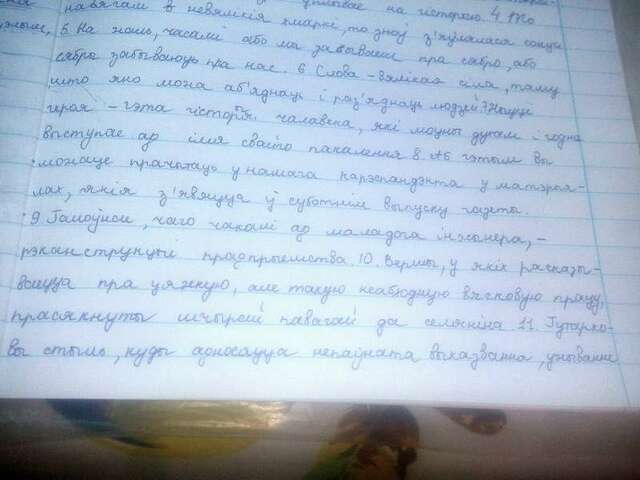 навягам в невялікія хмаркі, то зноў з'яўлялася сонца
5. На жаль, часам або мы забываем пра сяброў, або
сябры забываюць пра нас. 6 Слова - вялікая сіла, таму
што яно можа аб'яднаць і раз'яднаць людзей 7
героя - гэта гісторыя чалавека, які моцны духам і годна
выступае ад імя свайго пакалення 8. Аб гэтым вы
можаце прачытаць у нашага карэспандэнта у матэрыя-
лах, якія з'явяцца ў суботнім выпуску газеты.
9 Галоўнае, чаго чакалі ад маладога інжынера, -
рэканструкцыі прадпрыемства. 10. Вершы, у якіх расказы-
ваецца пра цяжкую, але такую неабходную вясковую працу,
прасякнуты шчырай павагай да селяніна 11 Гутарко-
вы стыль, куды адносяцца непаўната выказвання, ужыванне